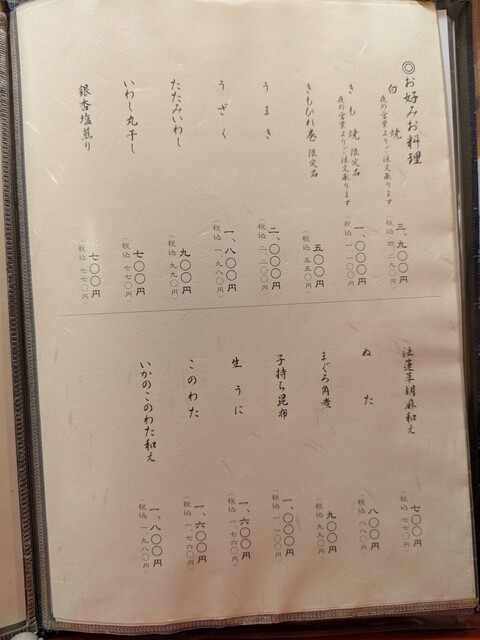 ◎お好みお料理
白焼
夜の営業よりご注文承ります
三、九〇〇円
(税込 四、二九〇円)
きも焼 限定品
夜の営業よりご注文承ります
一、〇〇〇円
(税込 一、一〇〇円)
きもひれ巻 限定品
五〇〇円
(税込 五五〇円)
うまき
二、〇〇〇円
(税込 二、二〇〇円)
うざく
一、八〇〇円
(税込 一、九八〇円)
たたみいわし
九〇〇円
(税込 九九〇円)
いわし丸干し
七〇〇円
(税込 七七〇円)
銀杏塩煎り
七〇〇円
(税込 七七〇円)
法蓮草胡麻和え
七〇〇円
(税込 七七〇円)
ぬた
八〇〇円
(税込 八八〇円)
まぐろ角煮
九〇〇円
(税込 九九〇円)
子持ち昆布
一、〇〇〇円
(税込 一、一〇〇円)
生うに
一、六〇〇円
(税込 一、七六〇円)
このわた
一、六〇〇円
(税込 一、七六〇円)
いかのこのわた和え
一、八〇〇円
(税込 一、九八〇円)